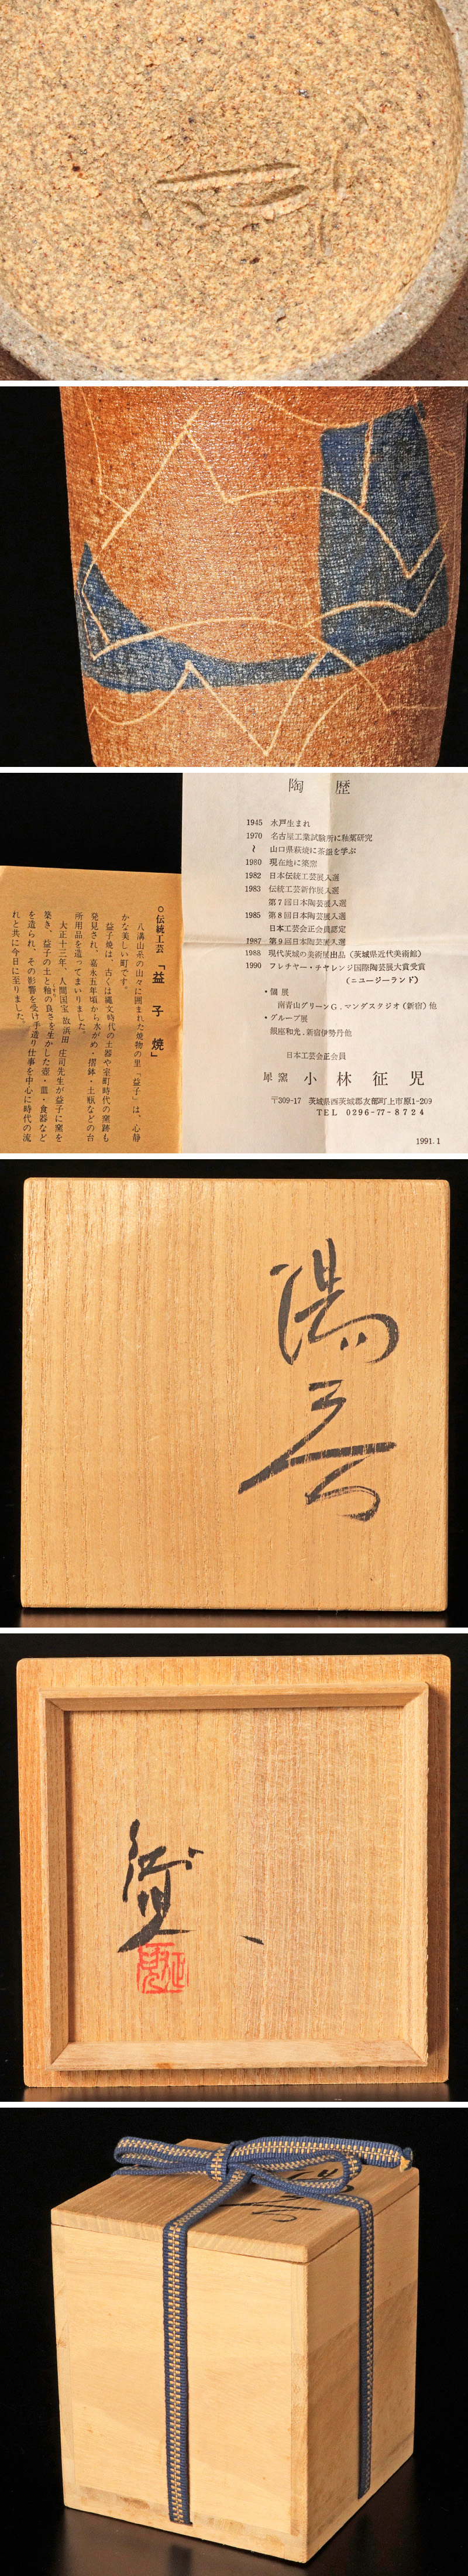 陶歴
1945 水戸生まれ
1970 名古屋工業試験所に釉薬研究
〜 山口県萩焼に茶器を学ぶ
1980 現在地に築窯
1982 日本伝統工芸展入選
1983 伝統工芸新作展入選
第7回日本陶芸展入選
1985 第8回日本陶芸展入選
日本工芸会正会員認定
1987 第9回日本陶芸展入選
1988 現代茨城の美術展出品(茨城県近代美術館)
1990 フレチャー・チャレンジ国際陶芸展大賞受賞
(ニュージーランド)
・個展
南青山グリーンG、マンダスタジオ(新宿)他
・グループ展
銀座和光、新宿伊勢丹他
日本工芸会正会員
窯 小林征児
〒309-17 茨城県西茨城郡友部町上市原1-209
TEL 0296-77-8724
1991.1
○伝統工芸「益子焼」
八溝山系の山々に囲まれた焼物の里『益子』は、心静
かな美しい町です。
益子焼は、古くは縄文時代の土器や室町時代の窯跡も
発見され、嘉永五年頃から水がめ・摺鉢・土瓶などの台
所用品を造ってまいりました。
大正十三年、人間国宝 故浜田 庄司先生が益子に窯を
築き、益子の土と釉の良さを生かした壺・皿・食器など
を造られ、その影響を受け手造り仕事を中心に時代の流
れと共に今日に至りました。